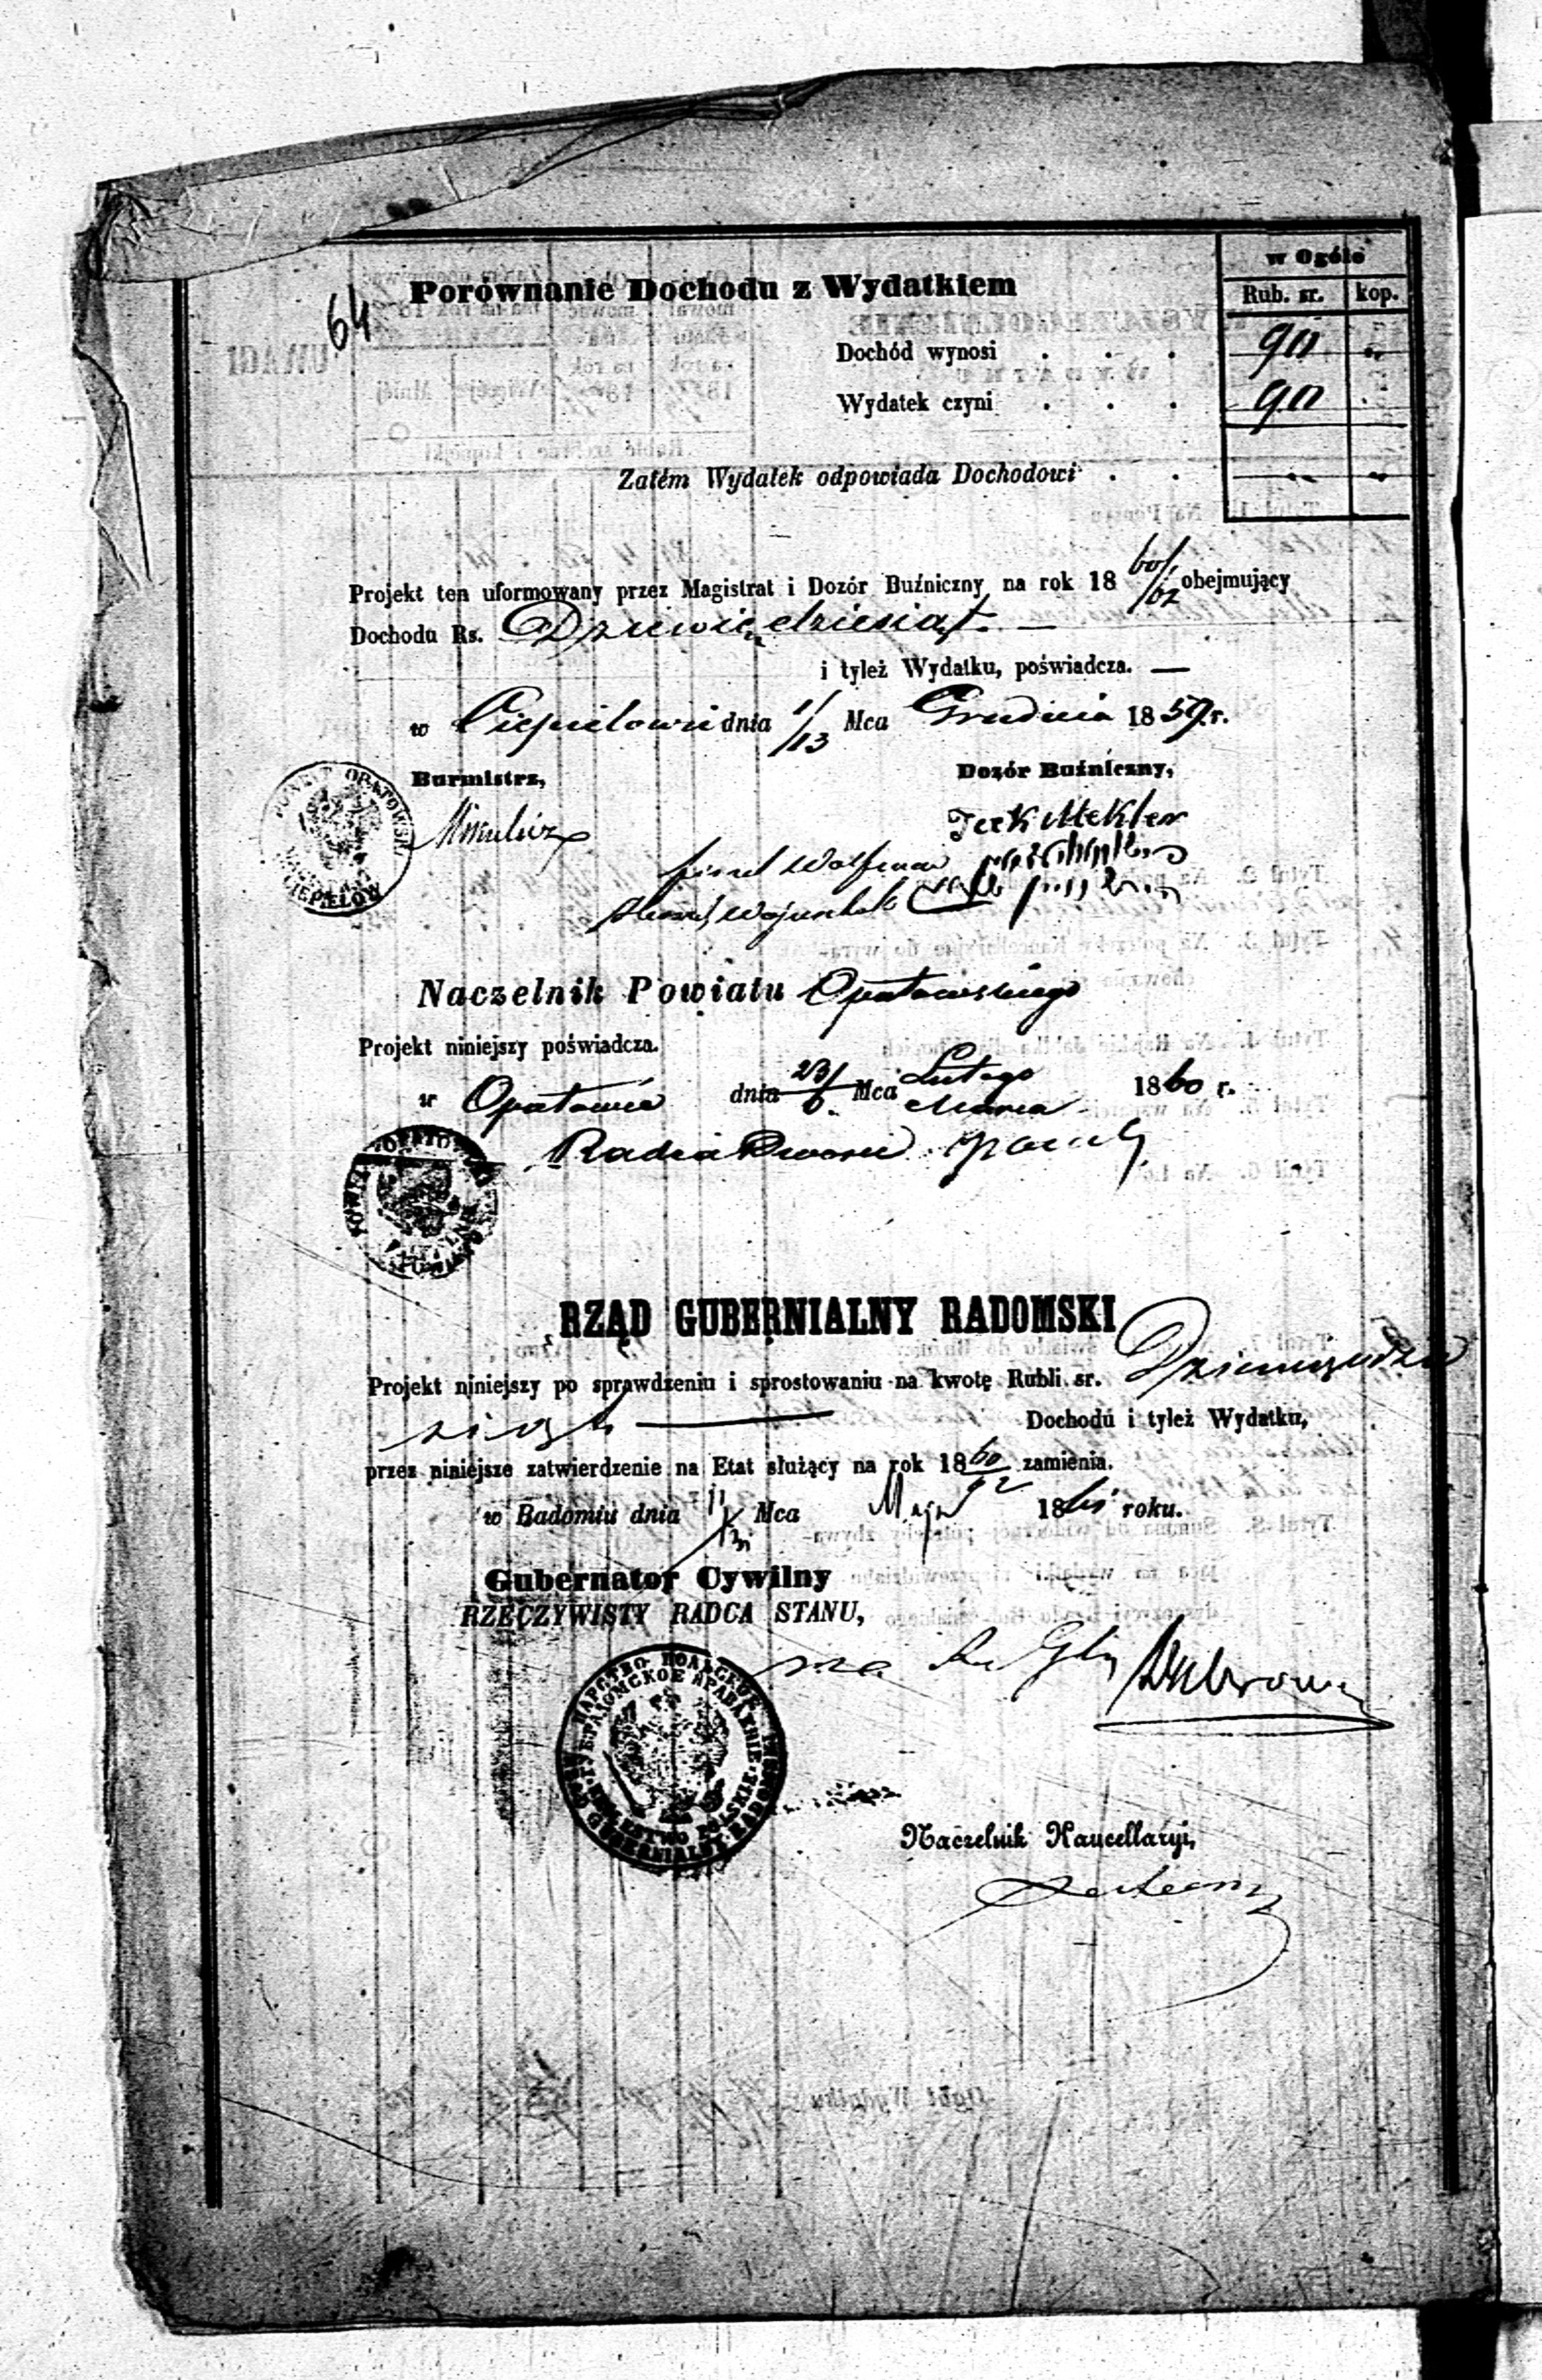 w Ogóle
Rub. sr. kop.
64
Porównanie Dochodu z Wydatkiem
Dochód wynosi . . . 90 „
Wydatek czyni . . . 90
Zatém Wydatek odpowiada Dochodowi . .
Projekt ten uformowany przez Magistrat i Dozór Buźniczny na rok 18 60/62 obejmujący
Dochodu Rs. Dziewięćdziesiąt. —
i tyleż Wydatku, poświadcza. —
w Ciepielowie dnia 1/13 Mca Grudnia 1859 r.
Burmistrz,
Dozór Buźniczny,
Mekler
Wolfman
Naczelnik Powiatu Opatowskiego
Projekt niniejszy poświadcza.
w Opatowie dnia 23/6. Mca Lutego Marca 1860 r.
Radca Dworu
RZĄD GUBERNIALNY RADOMSKI
Projekt niniejszy po sprawdzeniu i sprostowaniu na kwotę Rubli sr. Dziewięćdzie
siąt — Dochodu i tyleż Wydatku,
przez niniejsze zatwierdzenie na Etat służący na rok 18 60/62 zamienia.
w Radomiu dnia Mca Maja 18 roku.
Gubernator Cywilny
RZECZYWISTY RADCA STANU,
Naczelnik Kancellaryi,